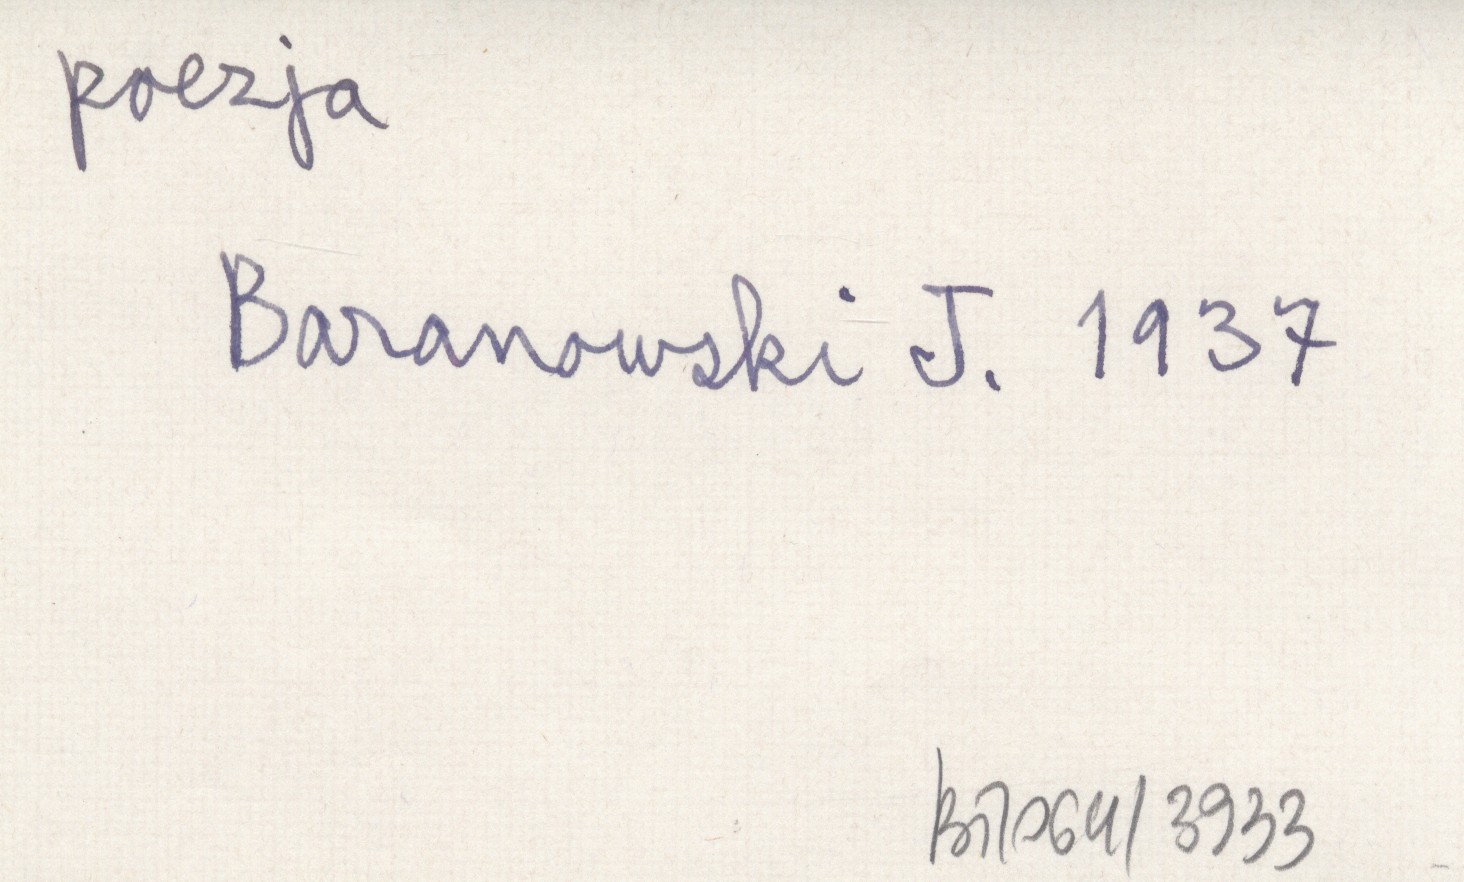 poezja
Baranowski J. 1937
3933